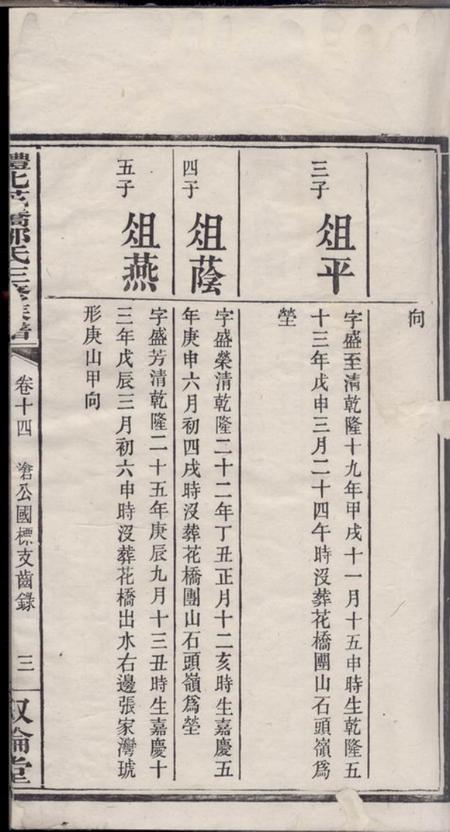 向
三子
俎平
字盛至清乾隆十九年甲戌十一月十五申時生乾隆五
十三年戊申三月二十四午時沒葬花橋團山石頭嶺爲
塋
四子
俎蔭
字盛榮清乾隆二十二年丁丑正月十二亥時生嘉慶五
年庚申六月初四戌時沒葬花橋團山石頭嶺爲塋
五子
俎燕
字盛芳清乾隆二十五年庚辰九月十三丑時生嘉慶十
三年戊辰三月初六申時沒葬花橋出水右邊張家灣琥
形庚山甲向
卷十四
滄公國標支齒錄
三
叙倫堂